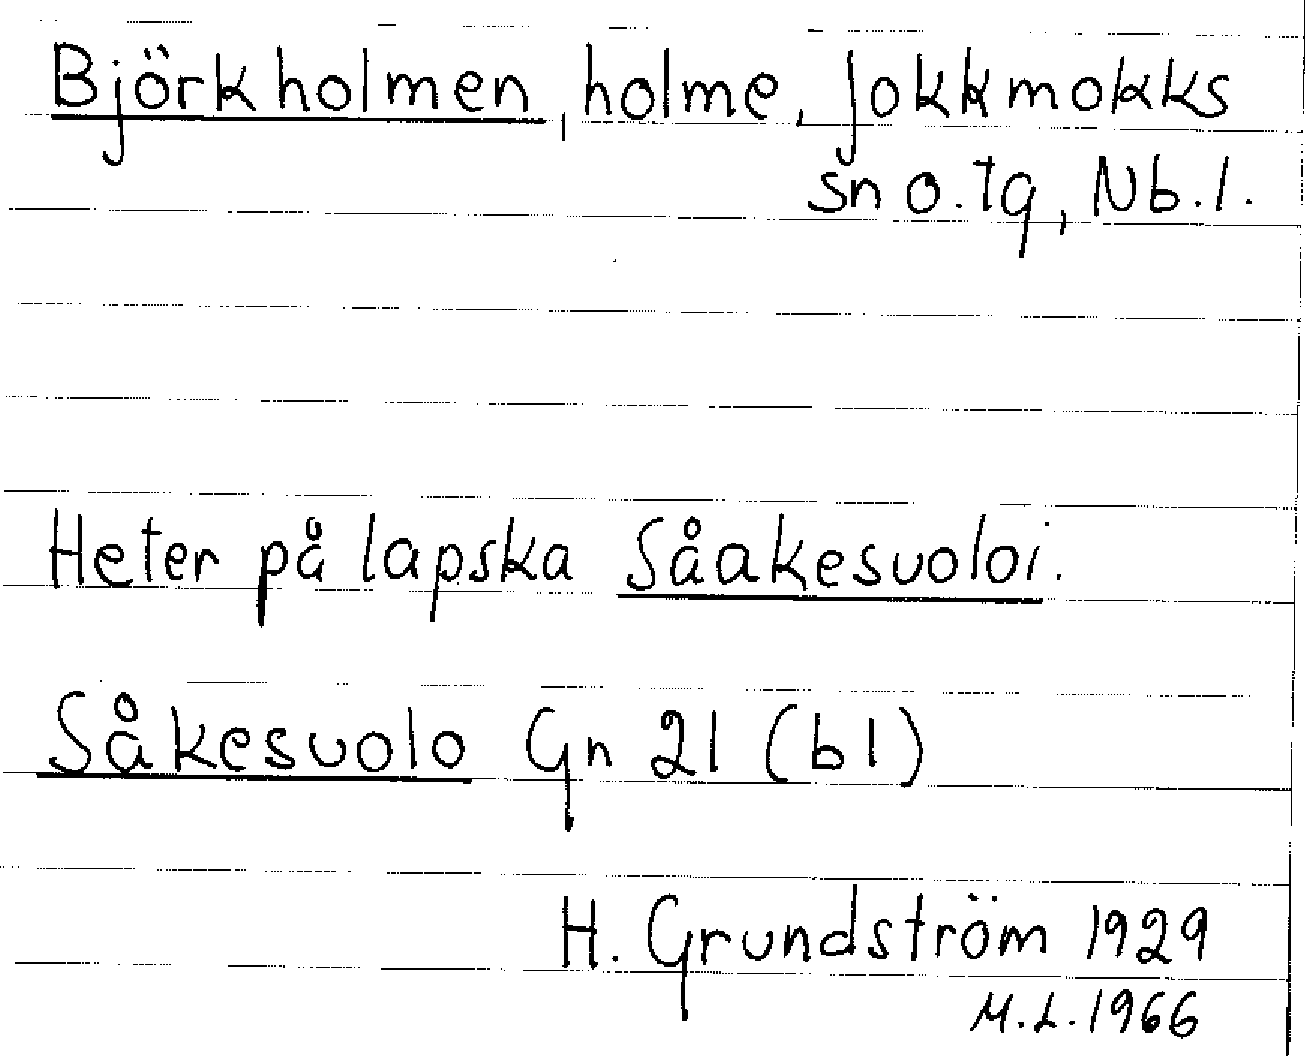 Björkholmen, holme, Jokkmokks
sn o. tg, Nb. l.
Heter på lapska Såakesuoloi.
Såkesuolo Gn 21 (bl)
H. Grundström 1929
M.L. 1966